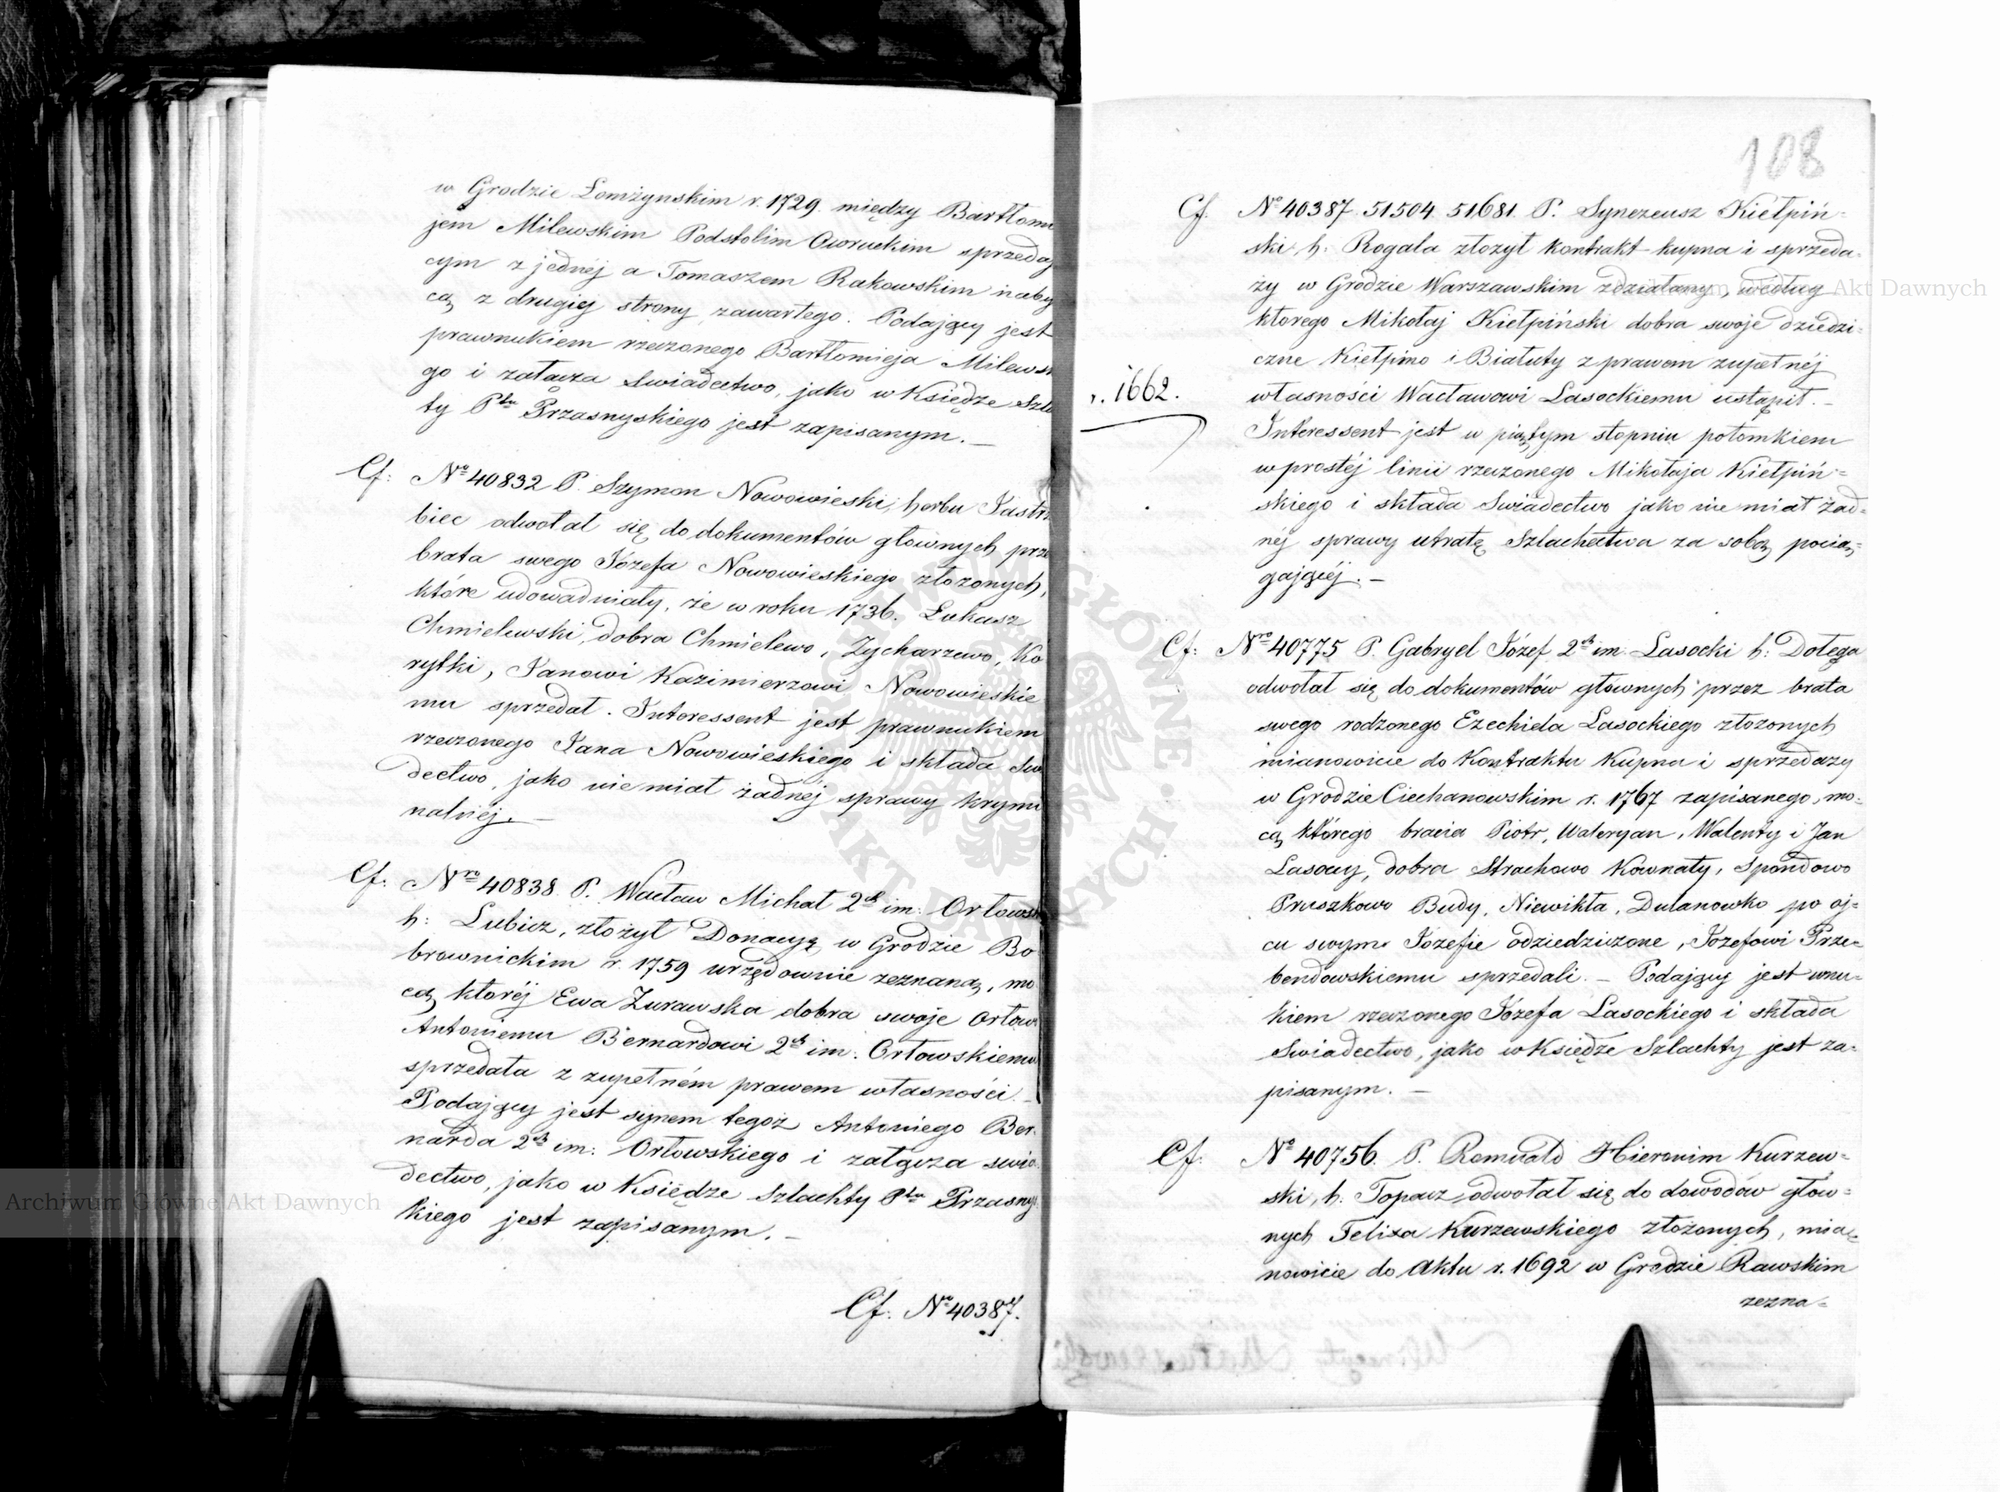 w Grodzie Łomżynskim r. 1729. między Bartłomi
jem Milewskim Podstolim Owruckim sprzedaj
cym z jednéj a Tomaszem Rakowskim naby
cą z drugiéj strony zawartego. Podający jest
prawnukiem rzeczonego Bartłomieja Milews
go i załącza Swiadectwo, jako w Księdze Szla
ty Ptu Przasnyskiego jest zapisanym. —
Cf: No 40832 P. Szymon Nowowieski, herbu Jastrz
biec odwołał się do dokumentów głownych prze
brata swego Józefa Nowowieskiego złozonych,
które udowadniały, że w roku 1736. Łukasz
Chmielewski, dobra Chmielewo, Zycharzewo, Ko
rytki, Janowi Kazimierzowi Nowowieskie
mu sprzedał. Interessent jest prawnukiem
rzeczonego Jana Nowowieskiego i składa Swia
dectwo, jako nie miał żadnéj sprawy krymi
nalnéj. —
Cf: Nro 40838. P. Wacław Michał 2ch im: Orłowski
h: Lubicz, złożył Donacyę w Grodzie Bo
brownickim r. 1759 urzędownie zeznaną, mo
cą któréj Ewa Zurawska dobra swoje Orłow
Antoniemu Bernardowi 2ch im: Orłowskiemu
sprzedała z zupełném prawem własności. —
Podający jest synem tegoż Antoniego Ber-
narda 2ch im: Orłowskiego i załącza swia
dectwo, jako w Księdze Szlachty Ptu Przasny
kiego jest zapisanym. —
Cf: No 40387.
108
Cf. No 40387. 51504. 51681. P. Synezeusz Kiełpiń-
ski, h: Rogala złozył kontrakt kupna i sprzeda-
ży w Grodzie Warszawskim zdziałany, według
ktorego Mikołaj Kiełpiński dobra swoje dziedzi-
czne Kiełpino i Białuty z prawem zupełnéj
r. 1662.
własności Wacławowi Lasockiemu ustąpił. —
Interessent jest w piątym stopniu potomkiem
w prostéj linii rzeczonego Mikołaja Kiełpiń-
skiego i składa Swiadectwo jako nie miał żad-
néj sprawy utratę Szlachectwa za sobą pocią-
gającéj. —
Cf: Nro 40775 P. Gabryel Józef 2ch im. Lasocki h: Dołęga
odwołał się do dokumentów głownych przez brata
swego rodzonego Ezechiela Lasockiego złozonych
mianowicie do Kontraktu Kupna i sprzedazy
w Grodzie Ciechanowskim r. 1767 zapisanego, mo-
cą którego bracia Piotr, Waleryan, Walenty i Jan
Lasoccy, dobra Strachowo Kownaty, Spondowo
Pruszkowo Budy, Niewikta, Dulanowko po oj-
cu swym Józefie odziedziczone, Józefowi Prze-
bendowskiemu sprzedali. — Podający jest wnu-
kiem rzeczonego Józefa Lasockiego i składa
Swiadectwo, jako w Księdze Szlachty jest za-
pisanym. —
Cf: No 40756. P. Romuald Hieronim Kurzew-
ski, h. Topacz, odwołał się do dowodów głów-
nych Felixa Kurzewskiego złozonych, mia-
nowicie do Aktu r. 1692 w Grodzie Rawskim
zezna-
Archiwum Główne Akt Dawnych